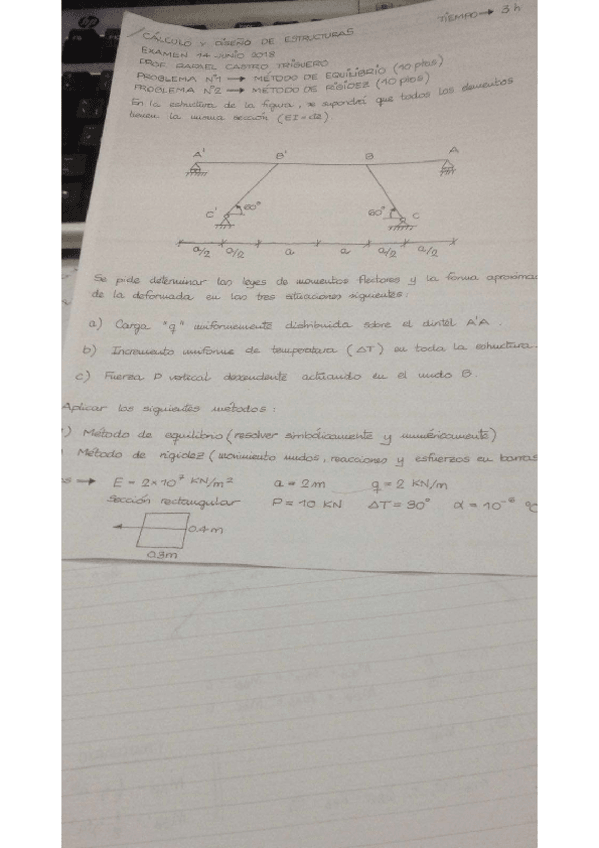 TIEMPO → 3 h
CÁLCULO Y DISEÑO DE ESTRUCTURAS
EXAMEN 14 JUNIO 2018
PROF. RAFAEL CASTRO TRIGUERO
PROBLEMA Nº1 → MÉTODO DE EQUILIBRIO (10 ptos)
PROBLEMA Nº2 → MÉTODO DE RIGIDEZ (10 ptos)
En la estructura de la figura, se supondrá que todos los elementos
tienen la misma sección (EI = cte).
A' B' B A
C' 60° 60° C
a/2 a/2 a a a/2 a/2
Se pide determinar las leyes de momentos flectores y la forma aproxima
de la deformada en las tres situaciones siguientes:
a) Carga "q" uniformemente distribuida sobre el dintel A'A.
b) Incremento uniforme de temperatura (ΔT) en toda la estructura.
c) Fuerza P vertical descendente actuando en el nudo B.
Aplicar los siguientes métodos:
) Método de equilibrio (resolver simbólicamente y numéricamente)
Método de rigidez (movimiento nudos, reacciones y esfuerzos en barras
os → E = 2×10⁷ KN/m² a = 2m q = 2 KN/m
Sección rectangular P = 10 KN ΔT = 30° α = 10
0.4m
0.3m